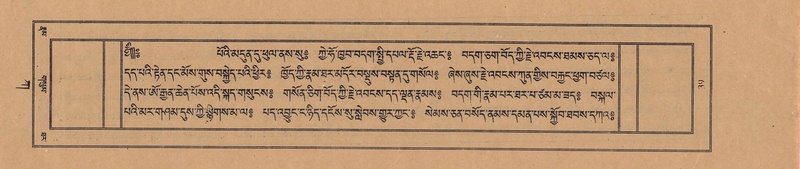 ༄༅།། པོའི་མདུན་དུ་ཕུལ་ནས་སུ༔ ཀྱེ་ཧོ་ཁྱབ་བདག་སྤྱི་དཔལ་རྡོ་རྗེ་འཆང་༔ བདག་ཅག་བོད་ཀྱི་རྗེ་འབངས་ཐམས་ཅད་ལ༔
དད་པའི་རྟེན་དང་མོས་གུས་བསྐྱེད་པའི་ཕྱིར༔ ཁྱོད་ཀྱི་རྣམ་ཐར་མདོར་བསྡུས་བསྟན་དུ་གསོལ༔ ཞེས་ཞུས་རྗེ་འབངས་ཀུན་གྱིས་བརྐྱང་ཕྱག་བཙལ༔
དེ་ནས་ཨོ་རྒྱན་ཆེན་པོས་འདི་སྐད་གསུངས༔ གསོན་ཅིག་བོད་ཀྱི་རྗེ་འབངས་དད་ལྡན་རྣམས༔ བདག་གི་རྣམ་པར་ཐར་པ་ཙམ་མ་ཟད༔ བསྐལ་
པའི་མར་གཤམ་དུས་ཀྱི་སྙིགས་མ་ལ༔ པད་འབྱུང་ང་ཉིད་དངོས་སུ་སླེབས་གྱུར་ཀྱང་༔ སེམས་ཅན་བསོད་ནམས་དམན་པས་སྐྱོབ་ཐབས་དཀའ༔